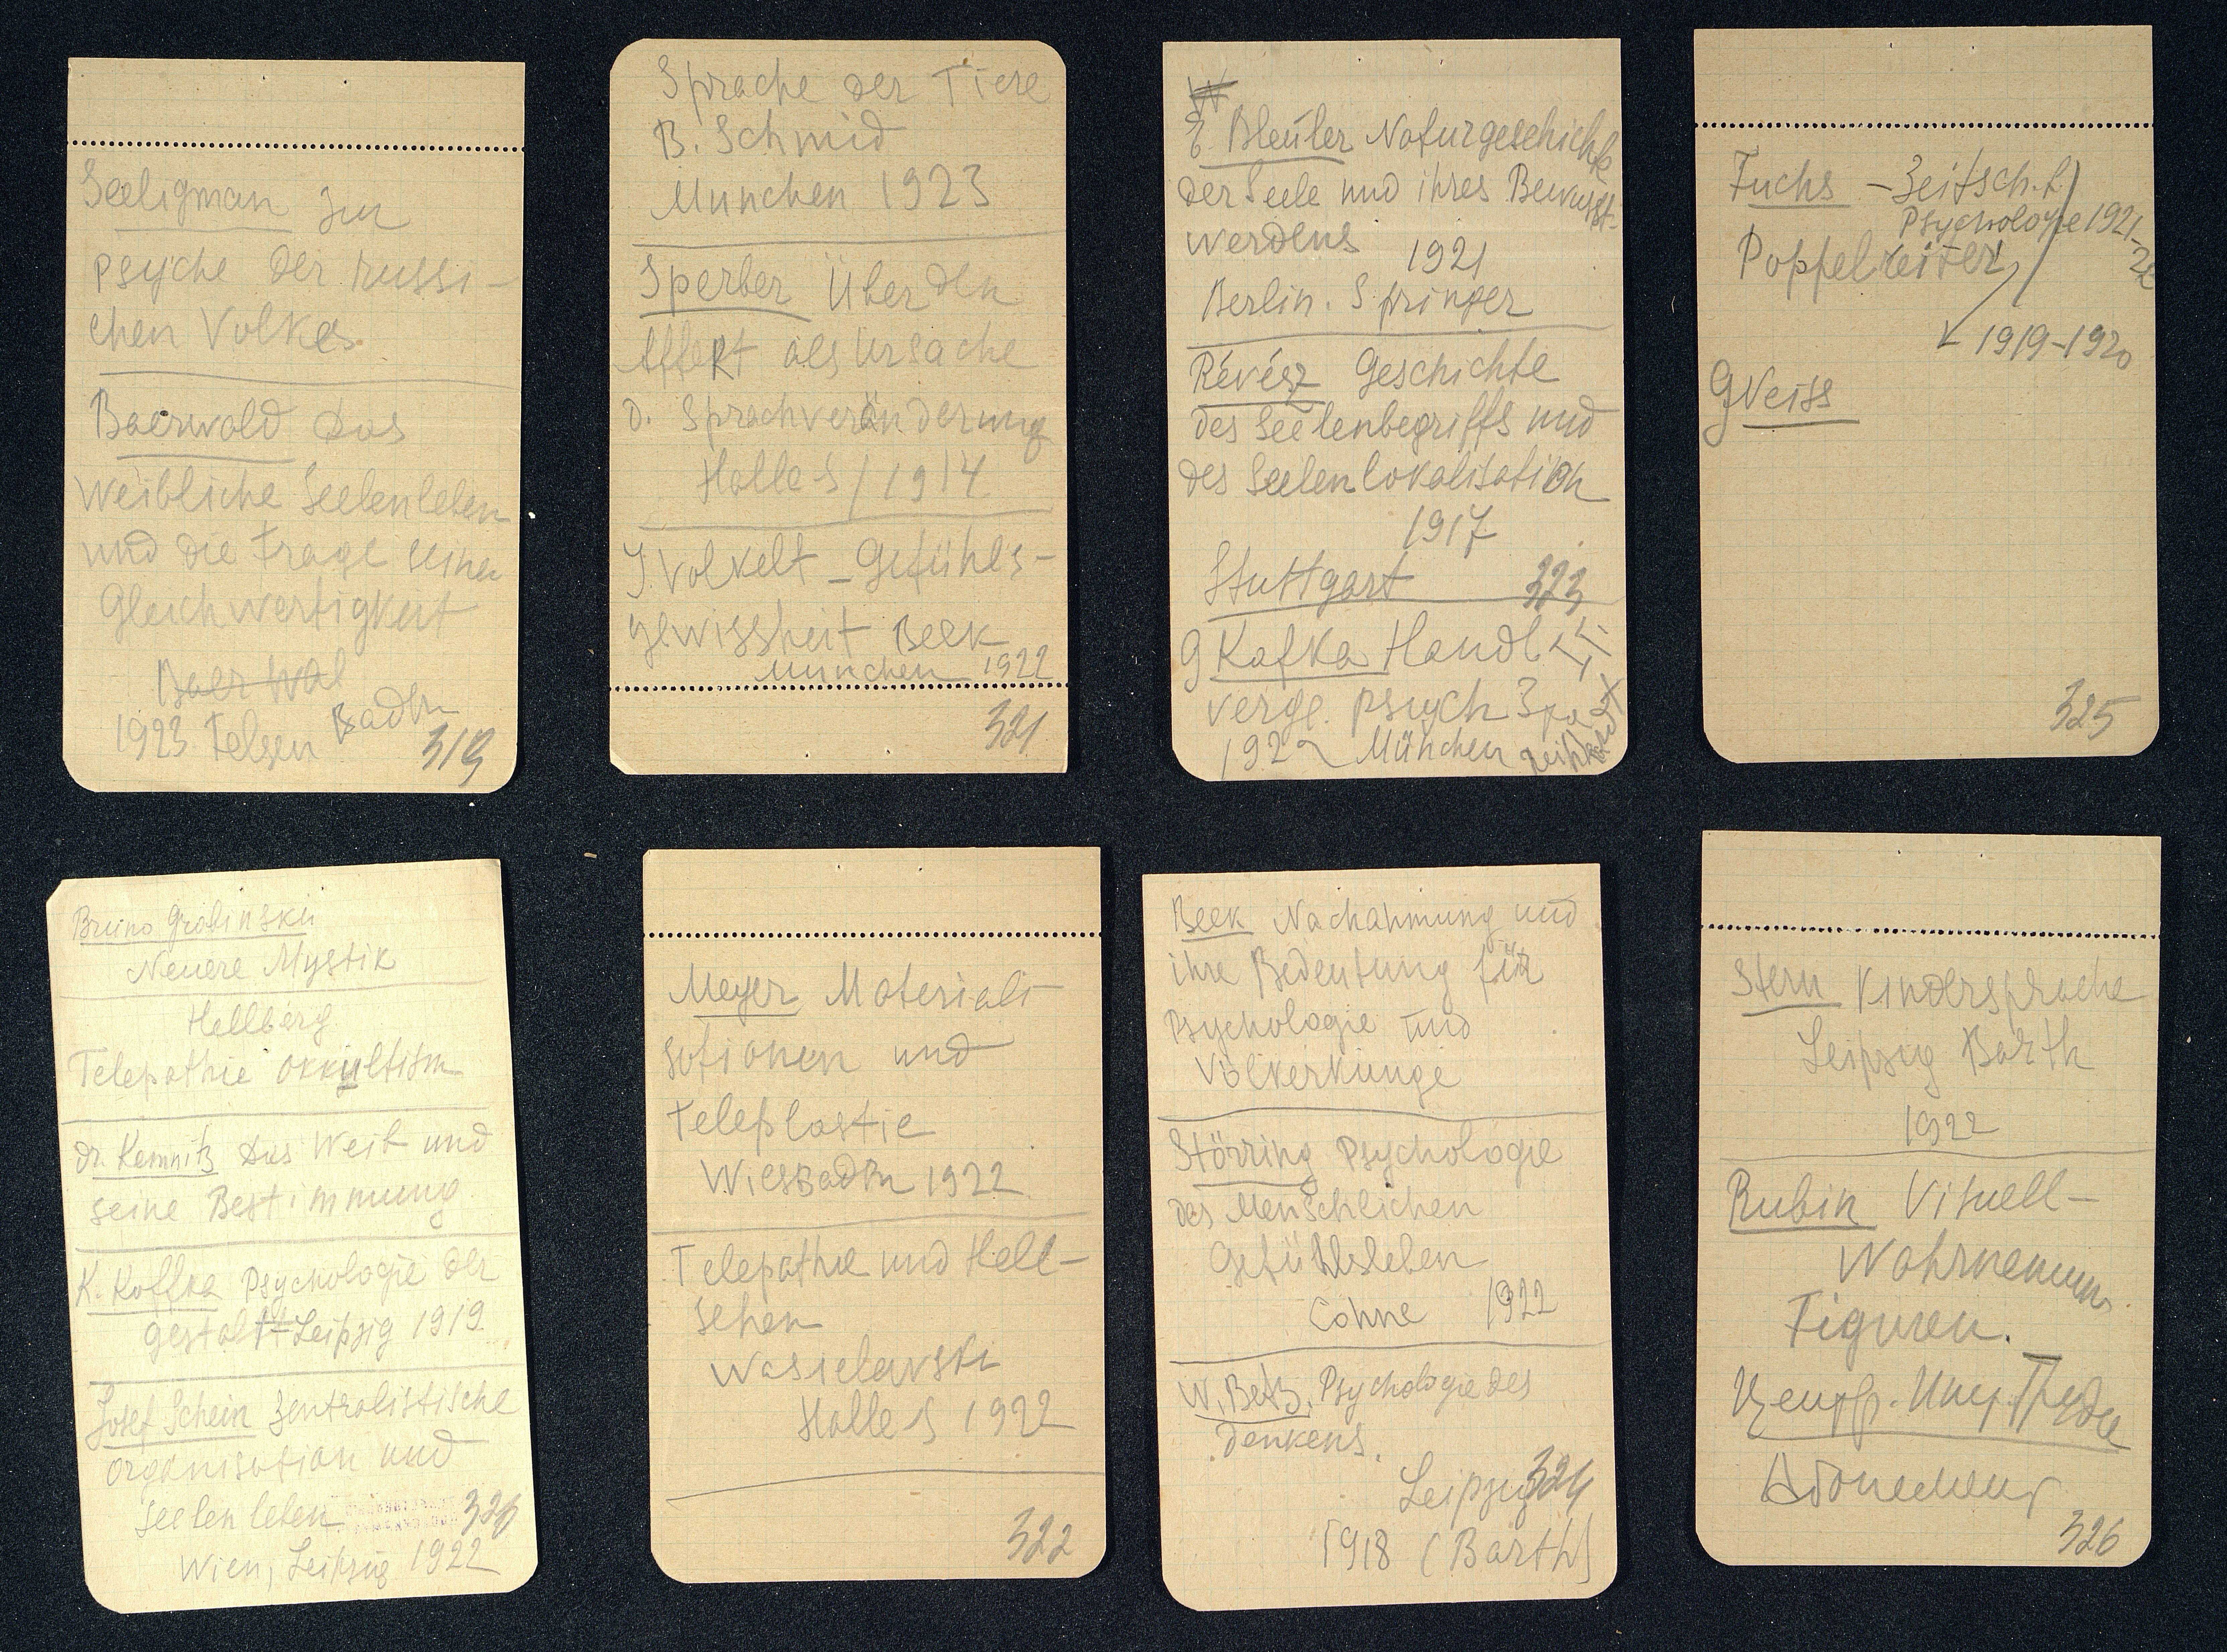 Seeligman zur
Psyche der russi-
chen Volkes.
Baerwald Das
weibliche Seelenleben
und die Frage seiner
Gleichwertigkeit
Baerwal
1923 Felsen Badln
319
Sprache der Tiere
B. Schmid
Munchen 1923
Sperber Über den
Affekt als Ursache
d. Sprachveränderung
Halle S / 1914
J. Volkelt – Gefühls-
gewissheit Beek
Munchen 1922
321
W
E. Bleuler Naturgeschichte
der Seele und ihres Bewusst-
werdens
1921
Berlin. Springer
Révész Geschichte
des Seelenbegriffs und
des Seelenlokalisation
1917
Stuttgart 323
G Kafka Handb
verge. psych 3
1922 München
Fuchs – Zeitsch. f.
Psychologie 1921-22
Poppelreiter
1919-1920
325
Bruno Grabinski
Neuere Mystik
Hellberg
Telepathie Okkultism
Dr. Kemnitz Das Weib und
seine Bestimmung
K. Koffka Psychologie der
Gestalt Leipzig 1919
Josef Schein Zentralistische
Organisation und
Seelenleben 320
Wien, Leipzig 1922
Meyer Materiali-
sationen und
Teleplastie
Wiesbadln 1922
Telepathie und Hell-
sehen
Wasielewski
Halle S 1922
322
Beek Nachahmung und
ihre Bedeutung für
Psychologie und
Völkerkunge
Störring Psychologie
des Menschlichen
Gefühlsleben
Cohne 1922
W. Betz. Psychologie des
Denkens.
Leipzig 324
1918 (Barth)
Stern Kindersprache
Leipzig Barth
1922
Rubin Visuell-
Wahrnemun.
Figuren.
326